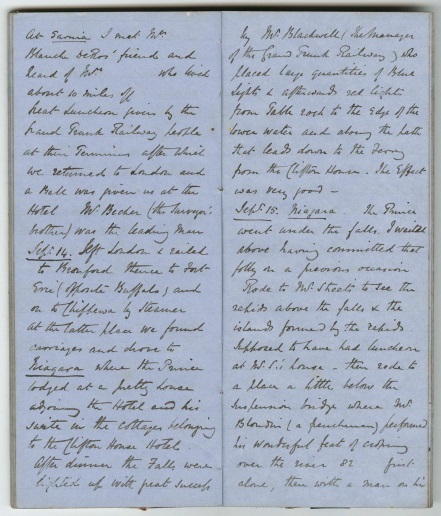 At Sarnia I met Mrs
Blanche friends and
heard of Mrs who lived
about 10 miles off
Great Luncheon given by the
Grand Trunk Railway people
at their Terminus after which
we returned to London and
a Ball was given us at the
Hotel Mr Becher (the Surveyor's
brother) was the leading Man
Sept. 14. Left London & railed
to Brantford thence to Fort
Erie (opposite Buffalo) and
on to Chippewa by steamer
at the latter place we found
carriages and drove to
Niagara where the Prince
lodged at a pretty house
adjoining the Hotel and his
suite in the cottages belonging
to the Clifton House Hotel.
After dinner the Falls were
lighted up with great success
by Mr Blackwell (The Manager
of the Grand Trunk Railway) who
placed large quantities of Blue
Lights & afterwards red lights
from Table rock to the Edge of the
lower water and along the path
that leads down to the Ferry
from the Clifton House. The Effect
was very good –
Sept. 15. Niagara. The Prince
went under the falls. I waited
above having committed that
folly on a previous occasion
Rode to Mr Streets to see the
rapids above the falls & the
islands formed by the rapids
supposed to have had luncheon
at Mr S.'s house – then rode to
a place a little below the
Suspension bridge where Mr
Blondin (a frenchman) performed
his wonderful feat of crossing
over the river &c first
alone, then with a man on his